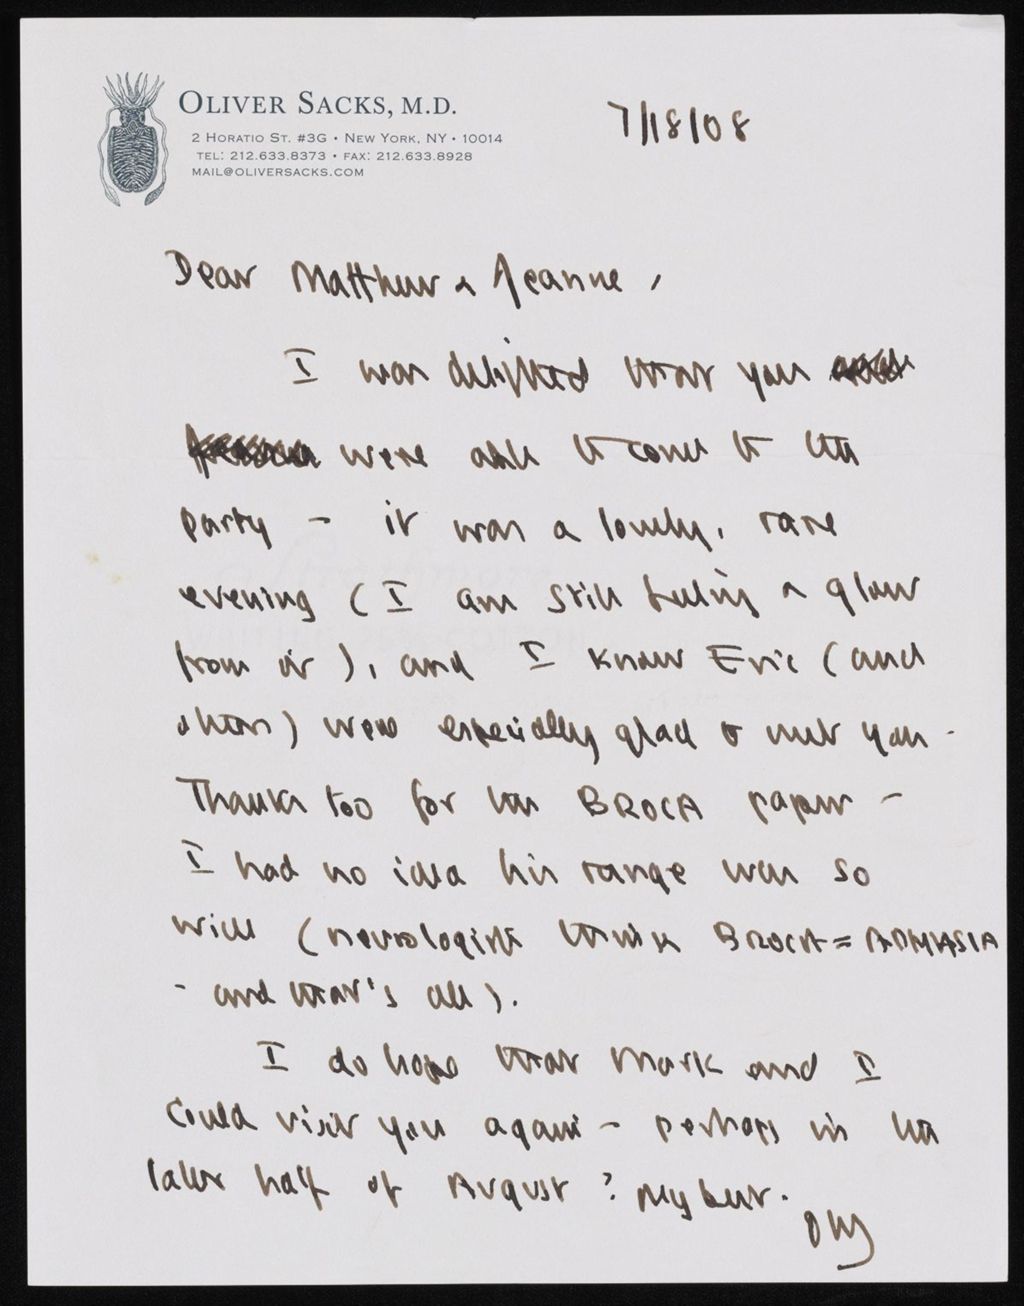 OLIVER SACKS, M.D.
2 HORATIO ST. #3G • NEW YORK, NY • 10014
TEL: 212.633.8373 • FAX: 212.633.8928
MAIL@OLIVERSACKS.COM
7/18/08
Dear Matthew & Jeanne,
I was delighted that you
were able to come to the
party – it was a lovely, rare
evening (I am still feeling a glow
from it), and I know Eric (and
others) were especially glad to meet you.
Thanks too for the BROCA paper –
I had no idea his range was so
wide (neurologists think BROCA = APHASIA
– and that's all).
I do hope that Mark and I
could visit you again – perhaps in the
later half of August? My best.